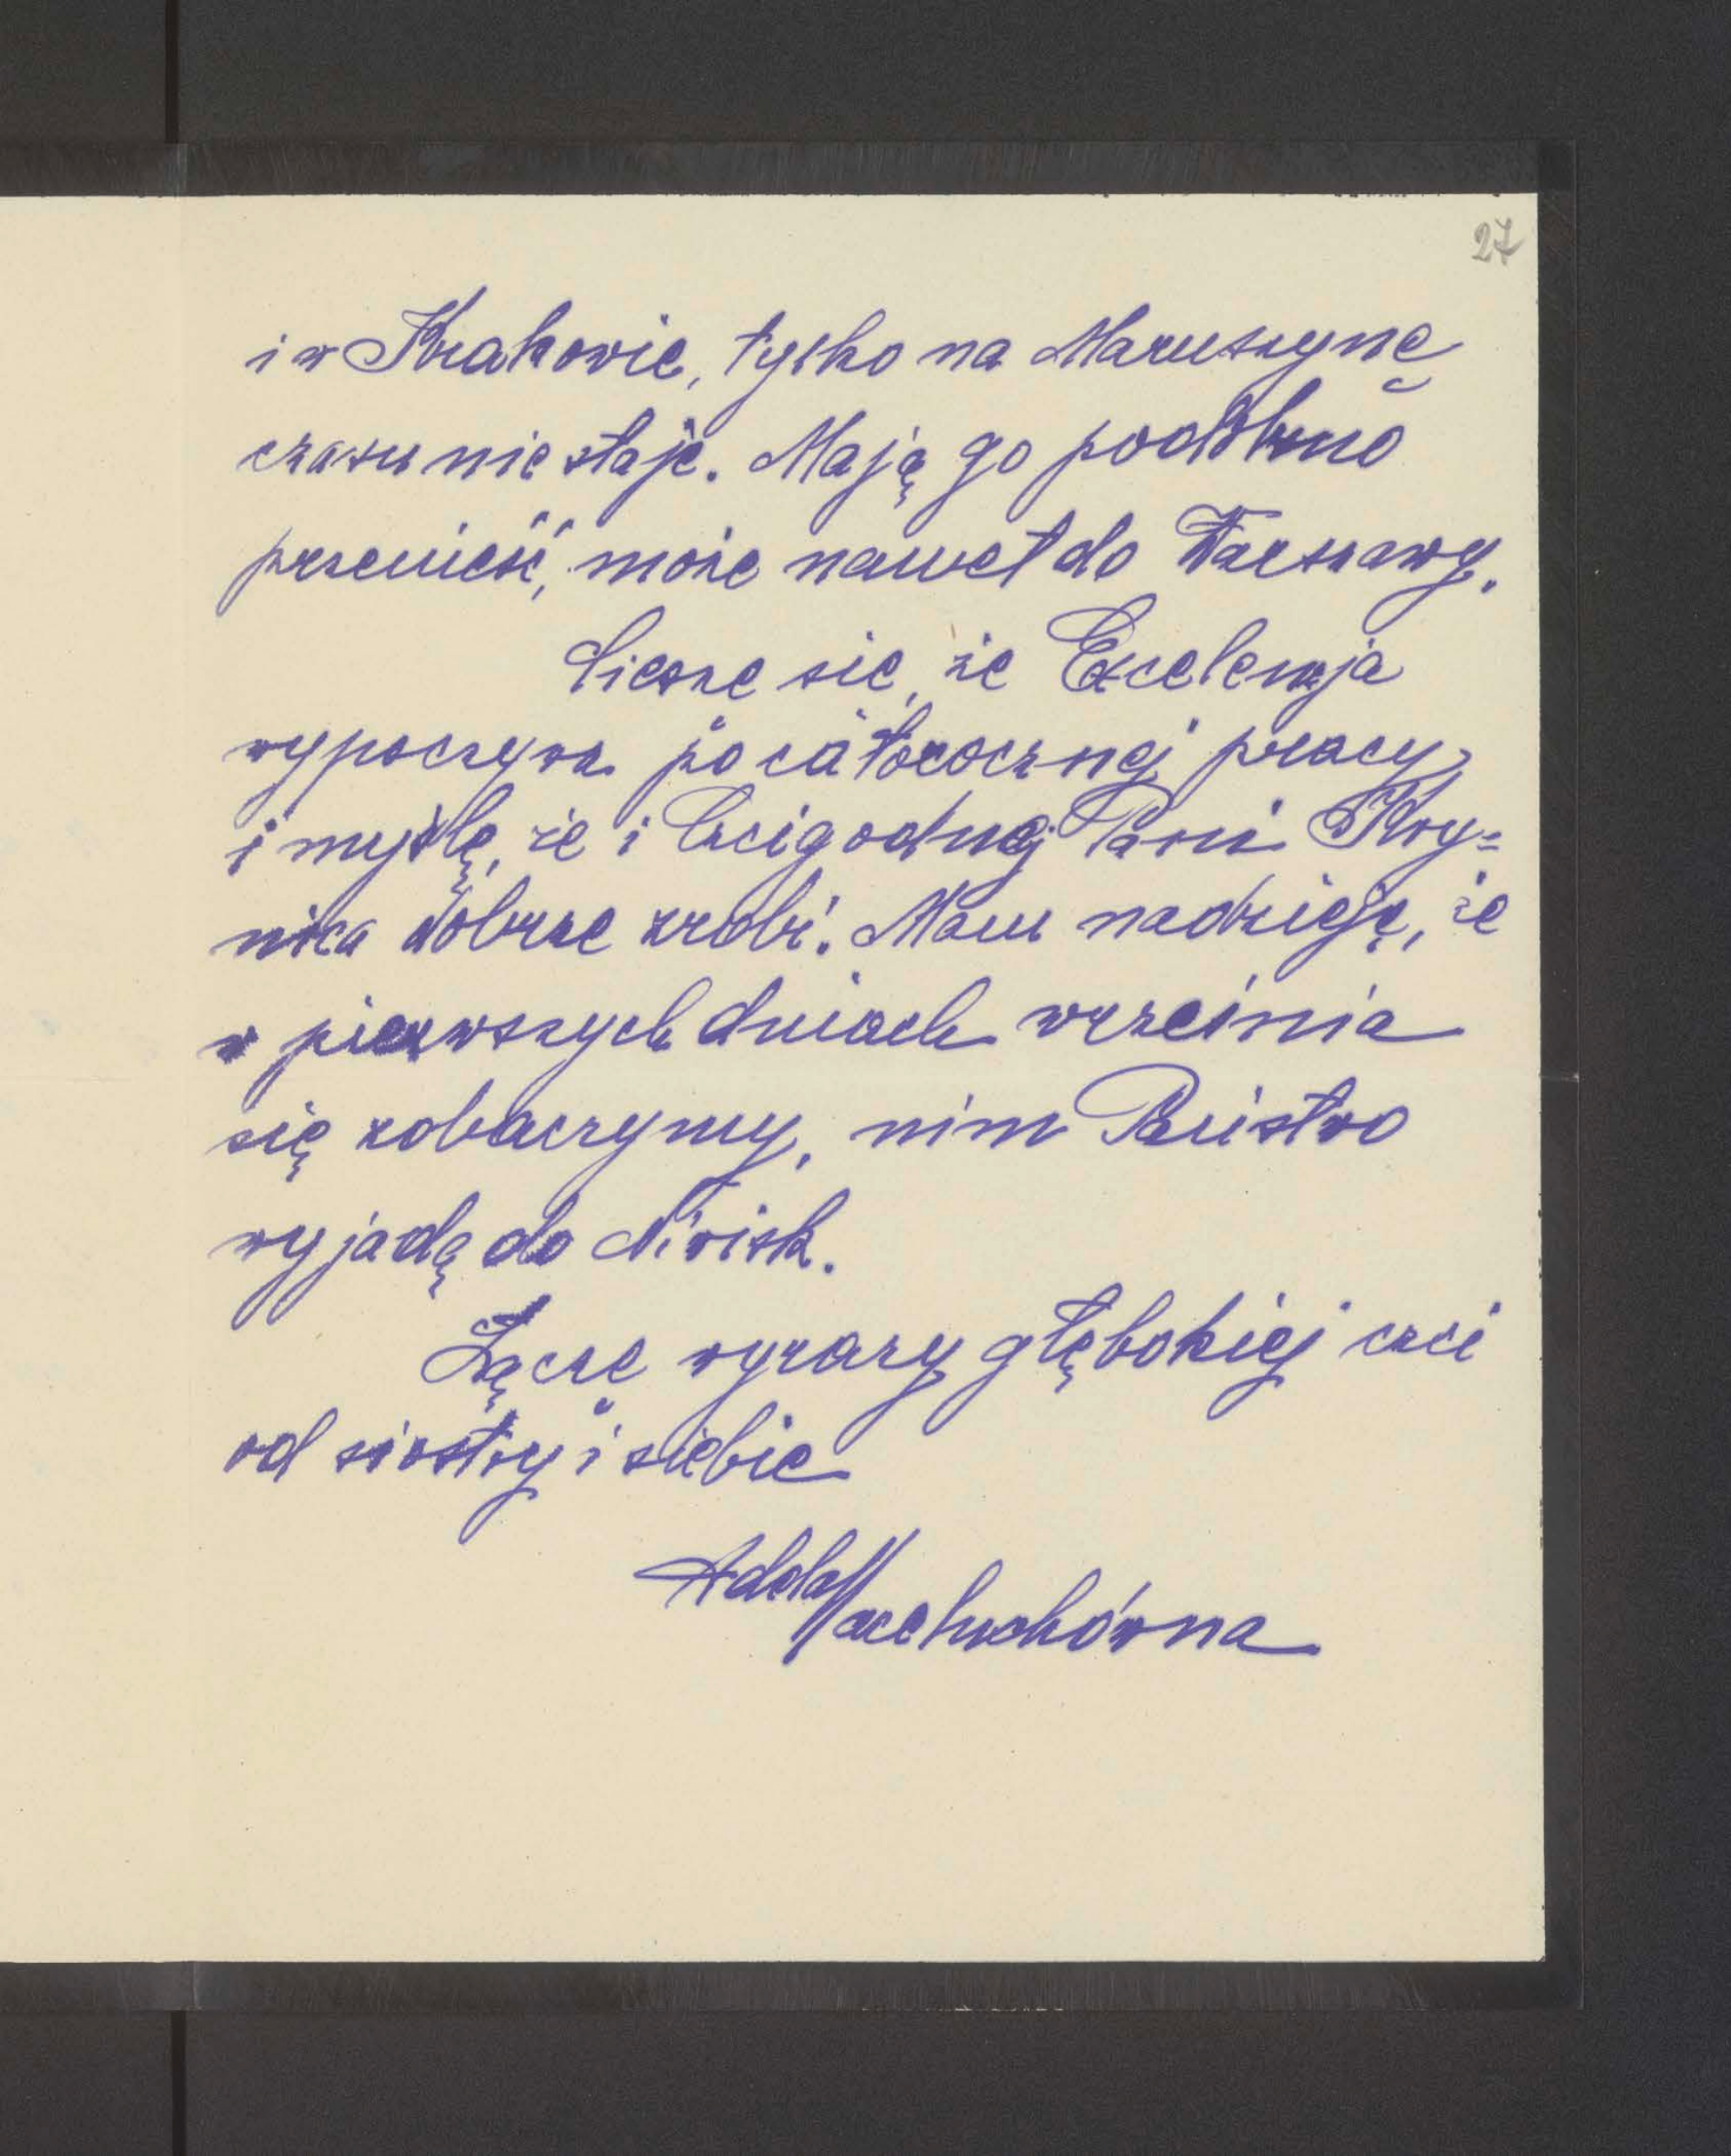 27
i w Krakowie, tylko na Maruszynę
czasu nie staje. Mają go podobno
przenieść, może nawet do Warszawy.
Cieszę się, że Excelencja
wypoczywa po całorocznej pracy
i myślę, że i Czcigodnej Pani Kry=
nica dobrze zrobi. Mam nadzieję, że
w pierwszych dniach września
się zobaczymy, nim Państwo
wyjadą do Nivisk.
Łączę wyrazy głębokiej czci
od siostry i siebie
Adela